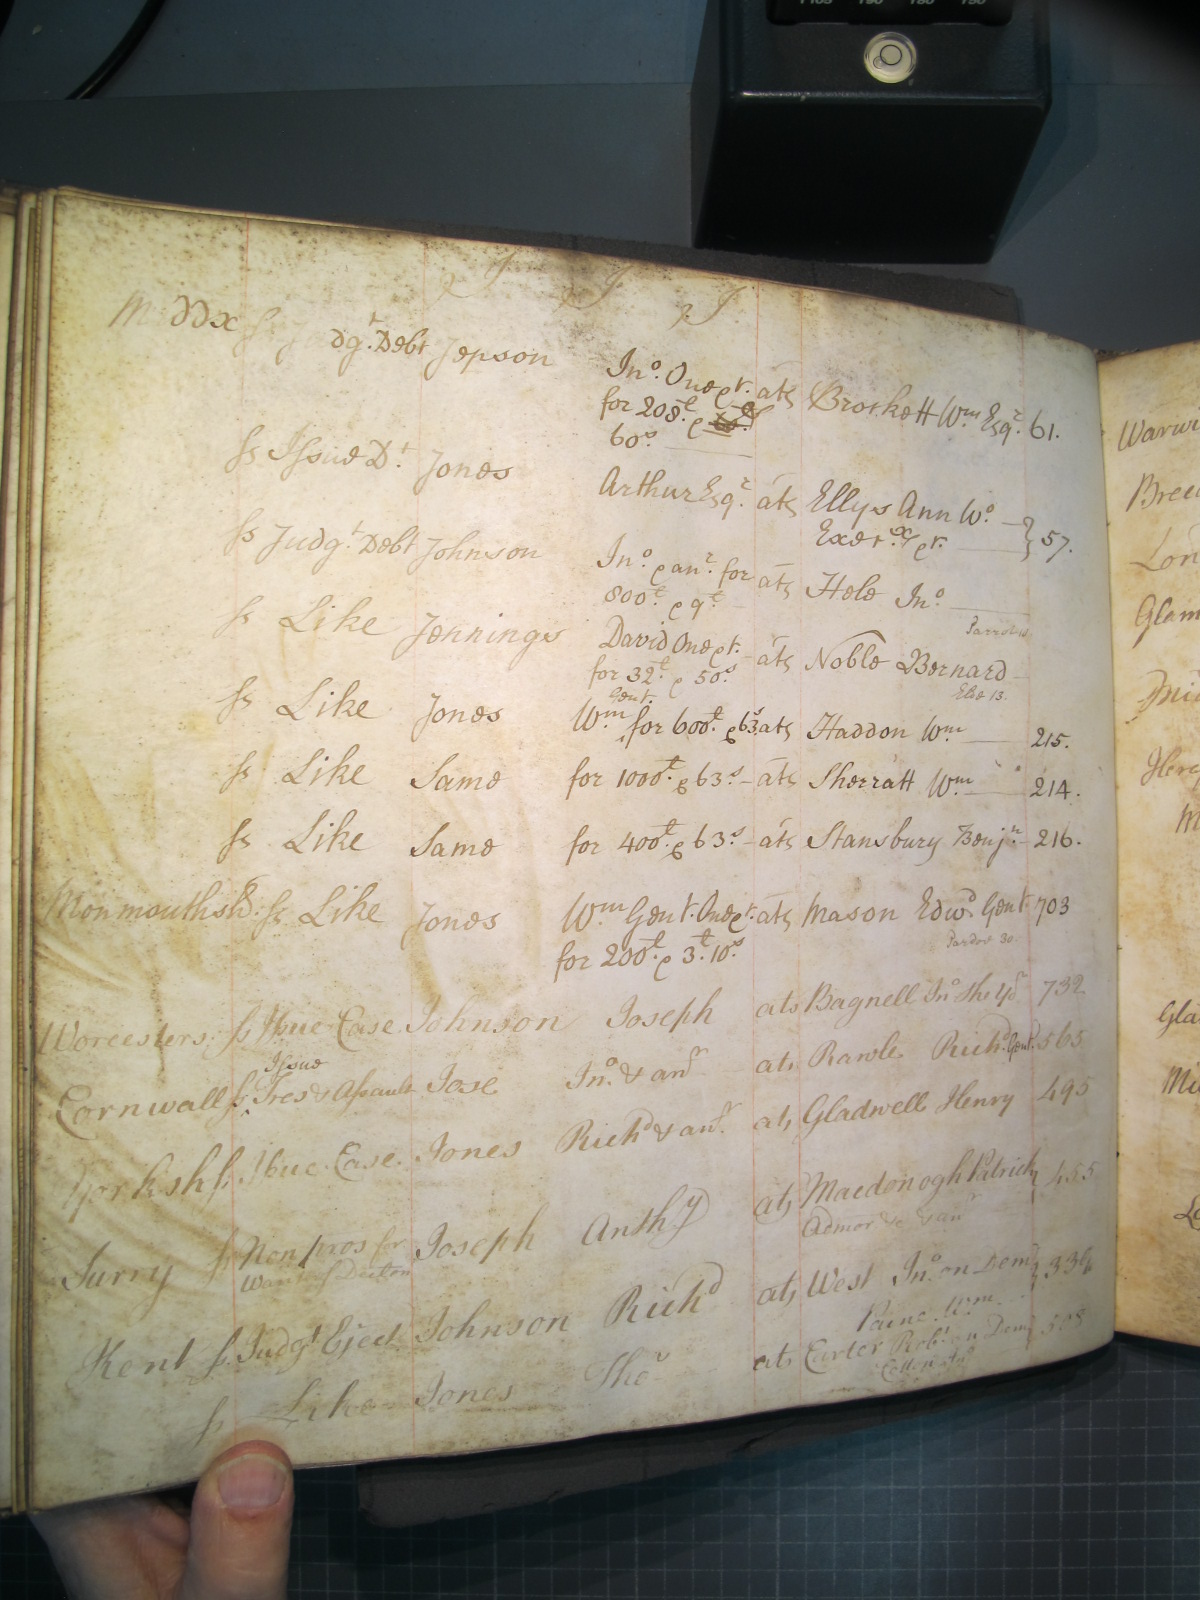 J J J
Middx ss Judgt. Debt Jepson Jno. One &c. for 208£. & 60s ats Brockett Wm. Esqr. 61.
ss Issue Dt. Jones Arthur Esqr. ats Ellys Ann Wo. Exec.x &c. 57.
ss Judgt. Debt Johnson Jno. & anr. for 800£. & 9£. ats Hole Jno.
ss Like Jennings David One &c. for 32£. & 50s. ats Noble Bernard
ss Like Jones Wm. Gent. for 600£. & 63s ats Haddon Wm. 215.
ss Like Same for 1000£. & 63s. ats Sherratt Wm. 214.
ss Like Same for 400£. & 63s ats Stansbury Benjn. 216.
Monmouthsh: ss Like Jones Wm. Gent. One &c. ats Mason Edwd. Gent. 703
for 200£. & 3£. 10s.
Worcesters: ss Issue Case Johnson Joseph ats Bagnell Jno. the Yr. 732
Cornwall ss Issue Tres & Assault Jose Jno. & anr. ats Rawle Richd. Gent. 565
Yorksh ss Issue Case Jones Richd & anr. ats Gladwell Henry 495
Surry ss Nonpros for Want of Declon Joseph Anthy ats Macdonogh Patrick Admor &c & anr 455
Kent ss Judgt Eject Johnson Richd ats West Jno. on Dem
Paine Wm.
ss Like Jones Thos ats Carter Robt. on Dem 508